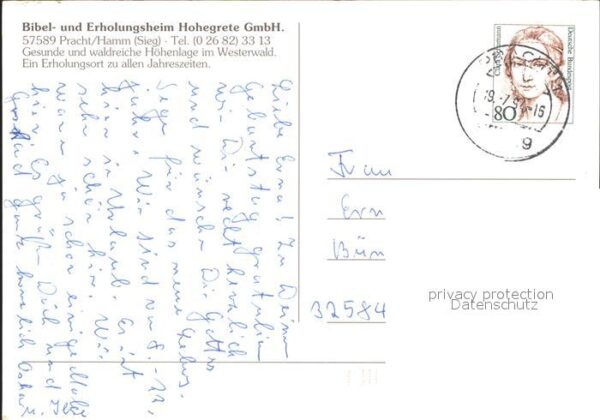 Bibel- und Erholungsheim Hohegrete GmbH.
57589 Pracht/Hamm (Sieg) · Tel. (0 26 82) 33 13
Gesunde und waldreiche Höhenlage im Westerwald.
Ein Erholungsort zu allen Jahreszeiten.
Liebe Erna! Zu Deinem
Geburtstag gratulieren
wir Dir recht herzlich
und wünschen Dir Gottes
Segen für das neue Lebens-
jahr. Wir sind vom 8.-22.
hier in Urlaub. Es ist
sehr schön hier. Wir
waren ja schon einige Male
hier. Es grüßt Dich und
Gerhard ganz herzlich
Deutsche Bundespost
80
Frau
Ern
Bün
32584
privacy protection
Datenschutz